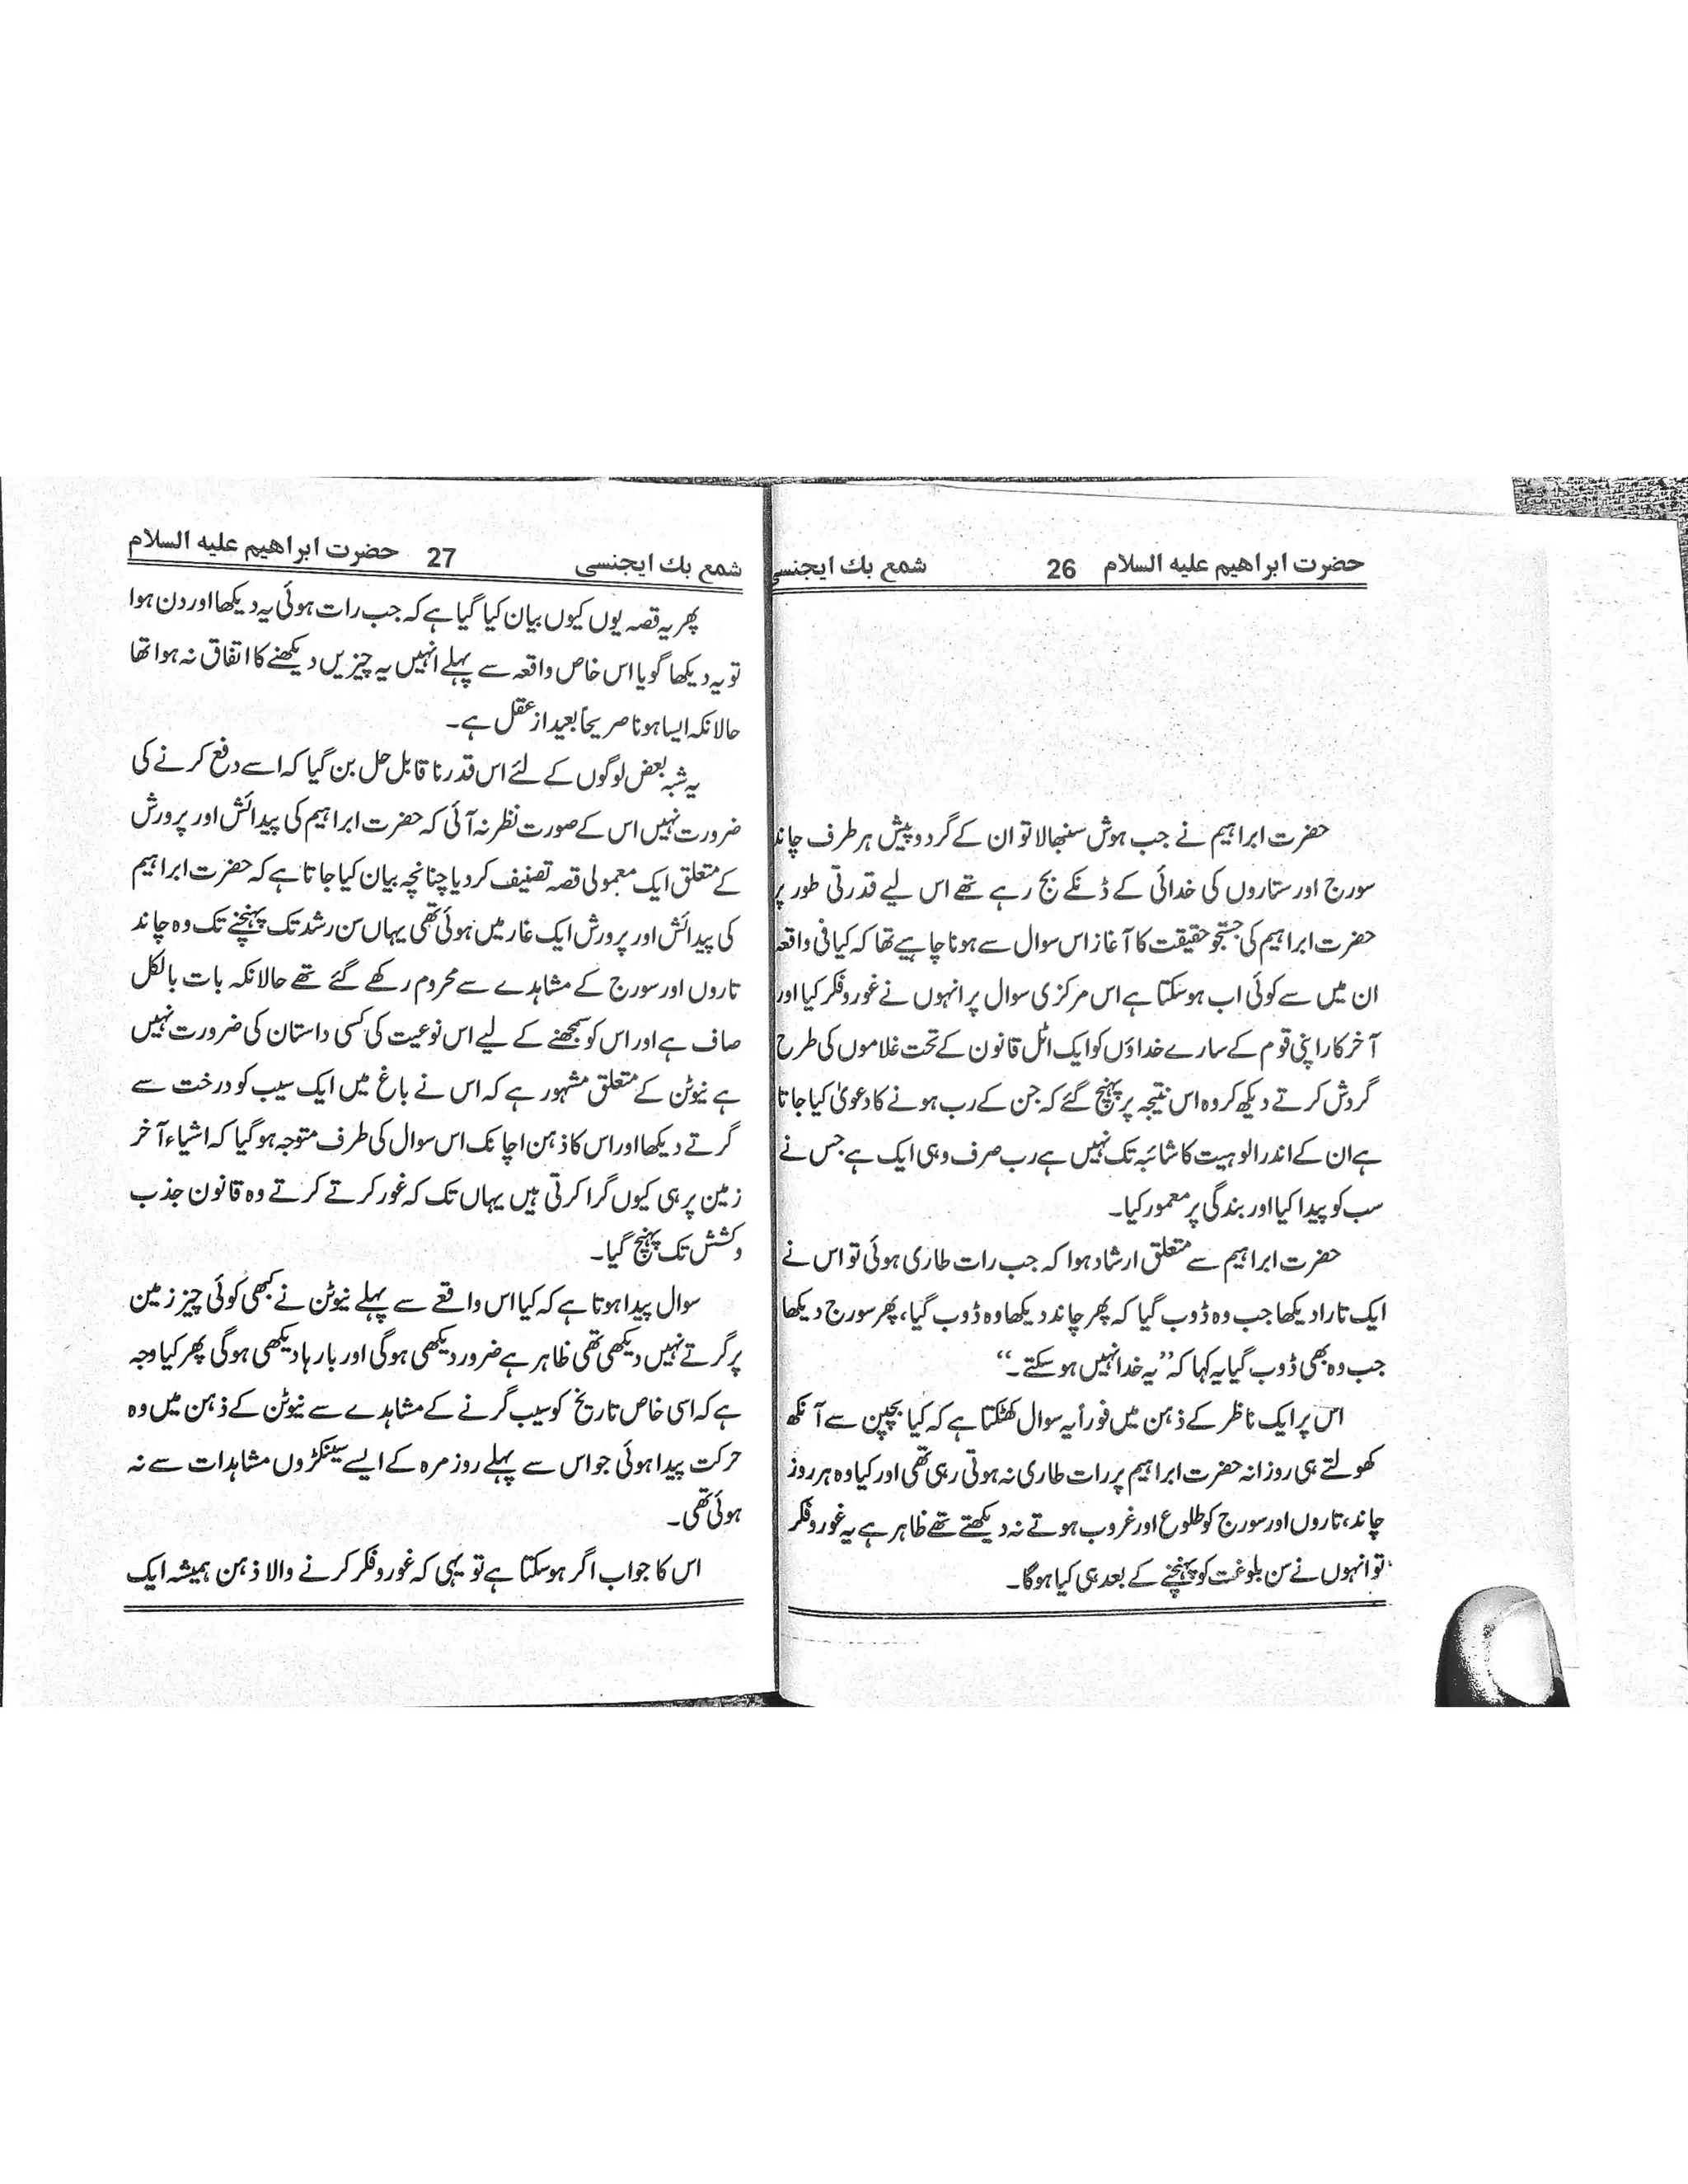 حضرت ابراهیم علیه السلام 26 شمع بك ایجنسی
حضرت ابراہیم نے جب ہوش سنبھالا تو ان کے گرد و پیش ہر طرف چاند
سورج اور ستاروں کی خدائی کے ڈنکے بج رہے تھے اس لیے قدرتی طور پر
حضرت ابراہیم کی جستجو حقیقت کا آغاز اس سوال سے ہونا چاہیے تھا کہ کیا فی واقعہ
ان میں سے کوئی اب ہو سکتا ہے اس مرکزی سوال پر انہوں نے غور و فکر کیا اور
آخر کار اپنی قوم کے سارے خداؤں کو ایک اٹل قانون کے تحت غلاموں کی طرح
گردش کرتے دیکھ کر وہ اس نتیجہ پر پہنچ گئے کہ جن کے رب ہونے کا دعویٰ کیا جاتا
ہے ان کے اندر الوہیت کا شائبہ تک نہیں ہے رب صرف وہی ایک ہے جس نے
سب کو پیدا کیا اور بندگی پر معمور کیا۔
حضرت ابراہیم سے متعلق ارشاد ہوا کہ جب رات طاری ہوئی تو اس نے
ایک تارا دیکھا جب وہ ڈوب گیا کہ پھر چاند دیکھا وہ ڈوب گیا، پھر سورج دیکھا
جب وہ بھی ڈوب گیا یہ کہا کہ ”یہ خدا نہیں ہو سکتے۔“
اس پر ایک ناظر کے ذہن میں فوراً یہ سوال کھٹکتا ہے کہ کیا بچپن سے آنکھ
کھولتے ہی روزانہ حضرت ابراہیم پر رات طاری نہ ہوتی رہی تھی اور کیا وہ ہر روز
چاند، تاروں اور سورج کو طلوع اور غروب ہوتے نہ دیکھتے تھے ظاہر ہے یہ غور و فکر
تو انہوں نے سن بلوغت کو پہنچنے کے بعد ہی کیا ہوگا۔
شمع بك ایجنسی 27 حضرت ابراهیم علیه السلام
پھر یہ قصہ یوں کیوں بیان کیا گیا ہے کہ جب رات ہوئی یہ دیکھا اور دن ہوا
تو یہ دیکھا گویا اس خاص واقعہ سے پہلے انہیں یہ چیزیں دیکھنے کا اتفاق نہ ہوا تھا
حالانکہ ایسا ہونا صریحاً بعید از عقل ہے۔
یہ شبہ بعض لوگوں کے لئے اس قدر ناقابل حل بن گیا کہ اسے دفع کرنے کی
ضرورت نہیں اس کے صورت نظر نہ آئی کہ حضرت ابراہیم کی پیدائش اور پرورش
کے متعلق ایک معمولی قصہ تصنیف کر دیا چنانچہ بیان کیا جاتا ہے کہ حضرت ابراہیم
کی پیدائش اور پرورش ایک غار میں ہوئی تھی یہاں سن رشد تک پہنچنے تک وہ چاند
تاروں اور سورج کے مشاہدے سے محروم رکھے گئے تھے حالانکہ بات بالکل
صاف ہے اور اس کو سمجھنے کے لیے اس نوعیت کی کسی داستان کی ضرورت نہیں
ہے نیوٹن کے متعلق مشہور ہے کہ اس نے باغ میں ایک سیب کو درخت سے
گرتے دیکھا اور اس کا ذہن اچانک اس سوال کی طرف متوجہ ہو گیا کہ اشیاء آخر
زمین پر ہی کیوں گرا کرتی ہیں یہاں تک کہ غور کرتے کرتے وہ قانون جذب
و کشش تک پہنچ گیا۔
سوال پیدا ہوتا ہے کہ کیا اس واقعے سے پہلے نیوٹن نے کبھی کوئی چیز زمین
پر گرتے نہیں دیکھی تھی ظاہر ہے ضرور دیکھی ہوگی اور بارہا دیکھی ہوگی پھر کیا وجہ
ہے کہ اسی خاص تاریخ کو سیب گرنے کے مشاہدے سے نیوٹن کے ذہن میں وہ
حرکت پیدا ہوئی جو اس سے پہلے روز مرہ کے ایسے سینکڑوں مشاہدات سے نہ
ہوئی تھی۔
اس کا جواب اگر ہو سکتا ہے تو یہی کہ غور و فکر کرنے والا ذہن ہمیشہ ایک